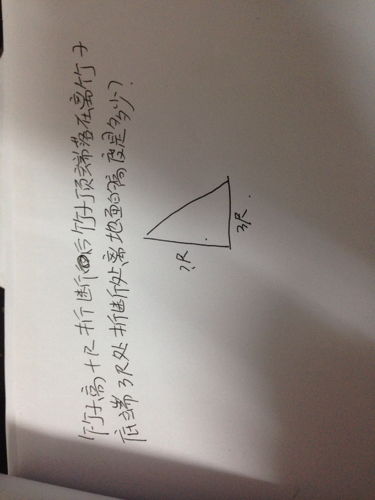 竹子高十尺折断后竹子顶端落在离竹子
底端3尺处折断处离地面的高度是多少?
?尺
3尺